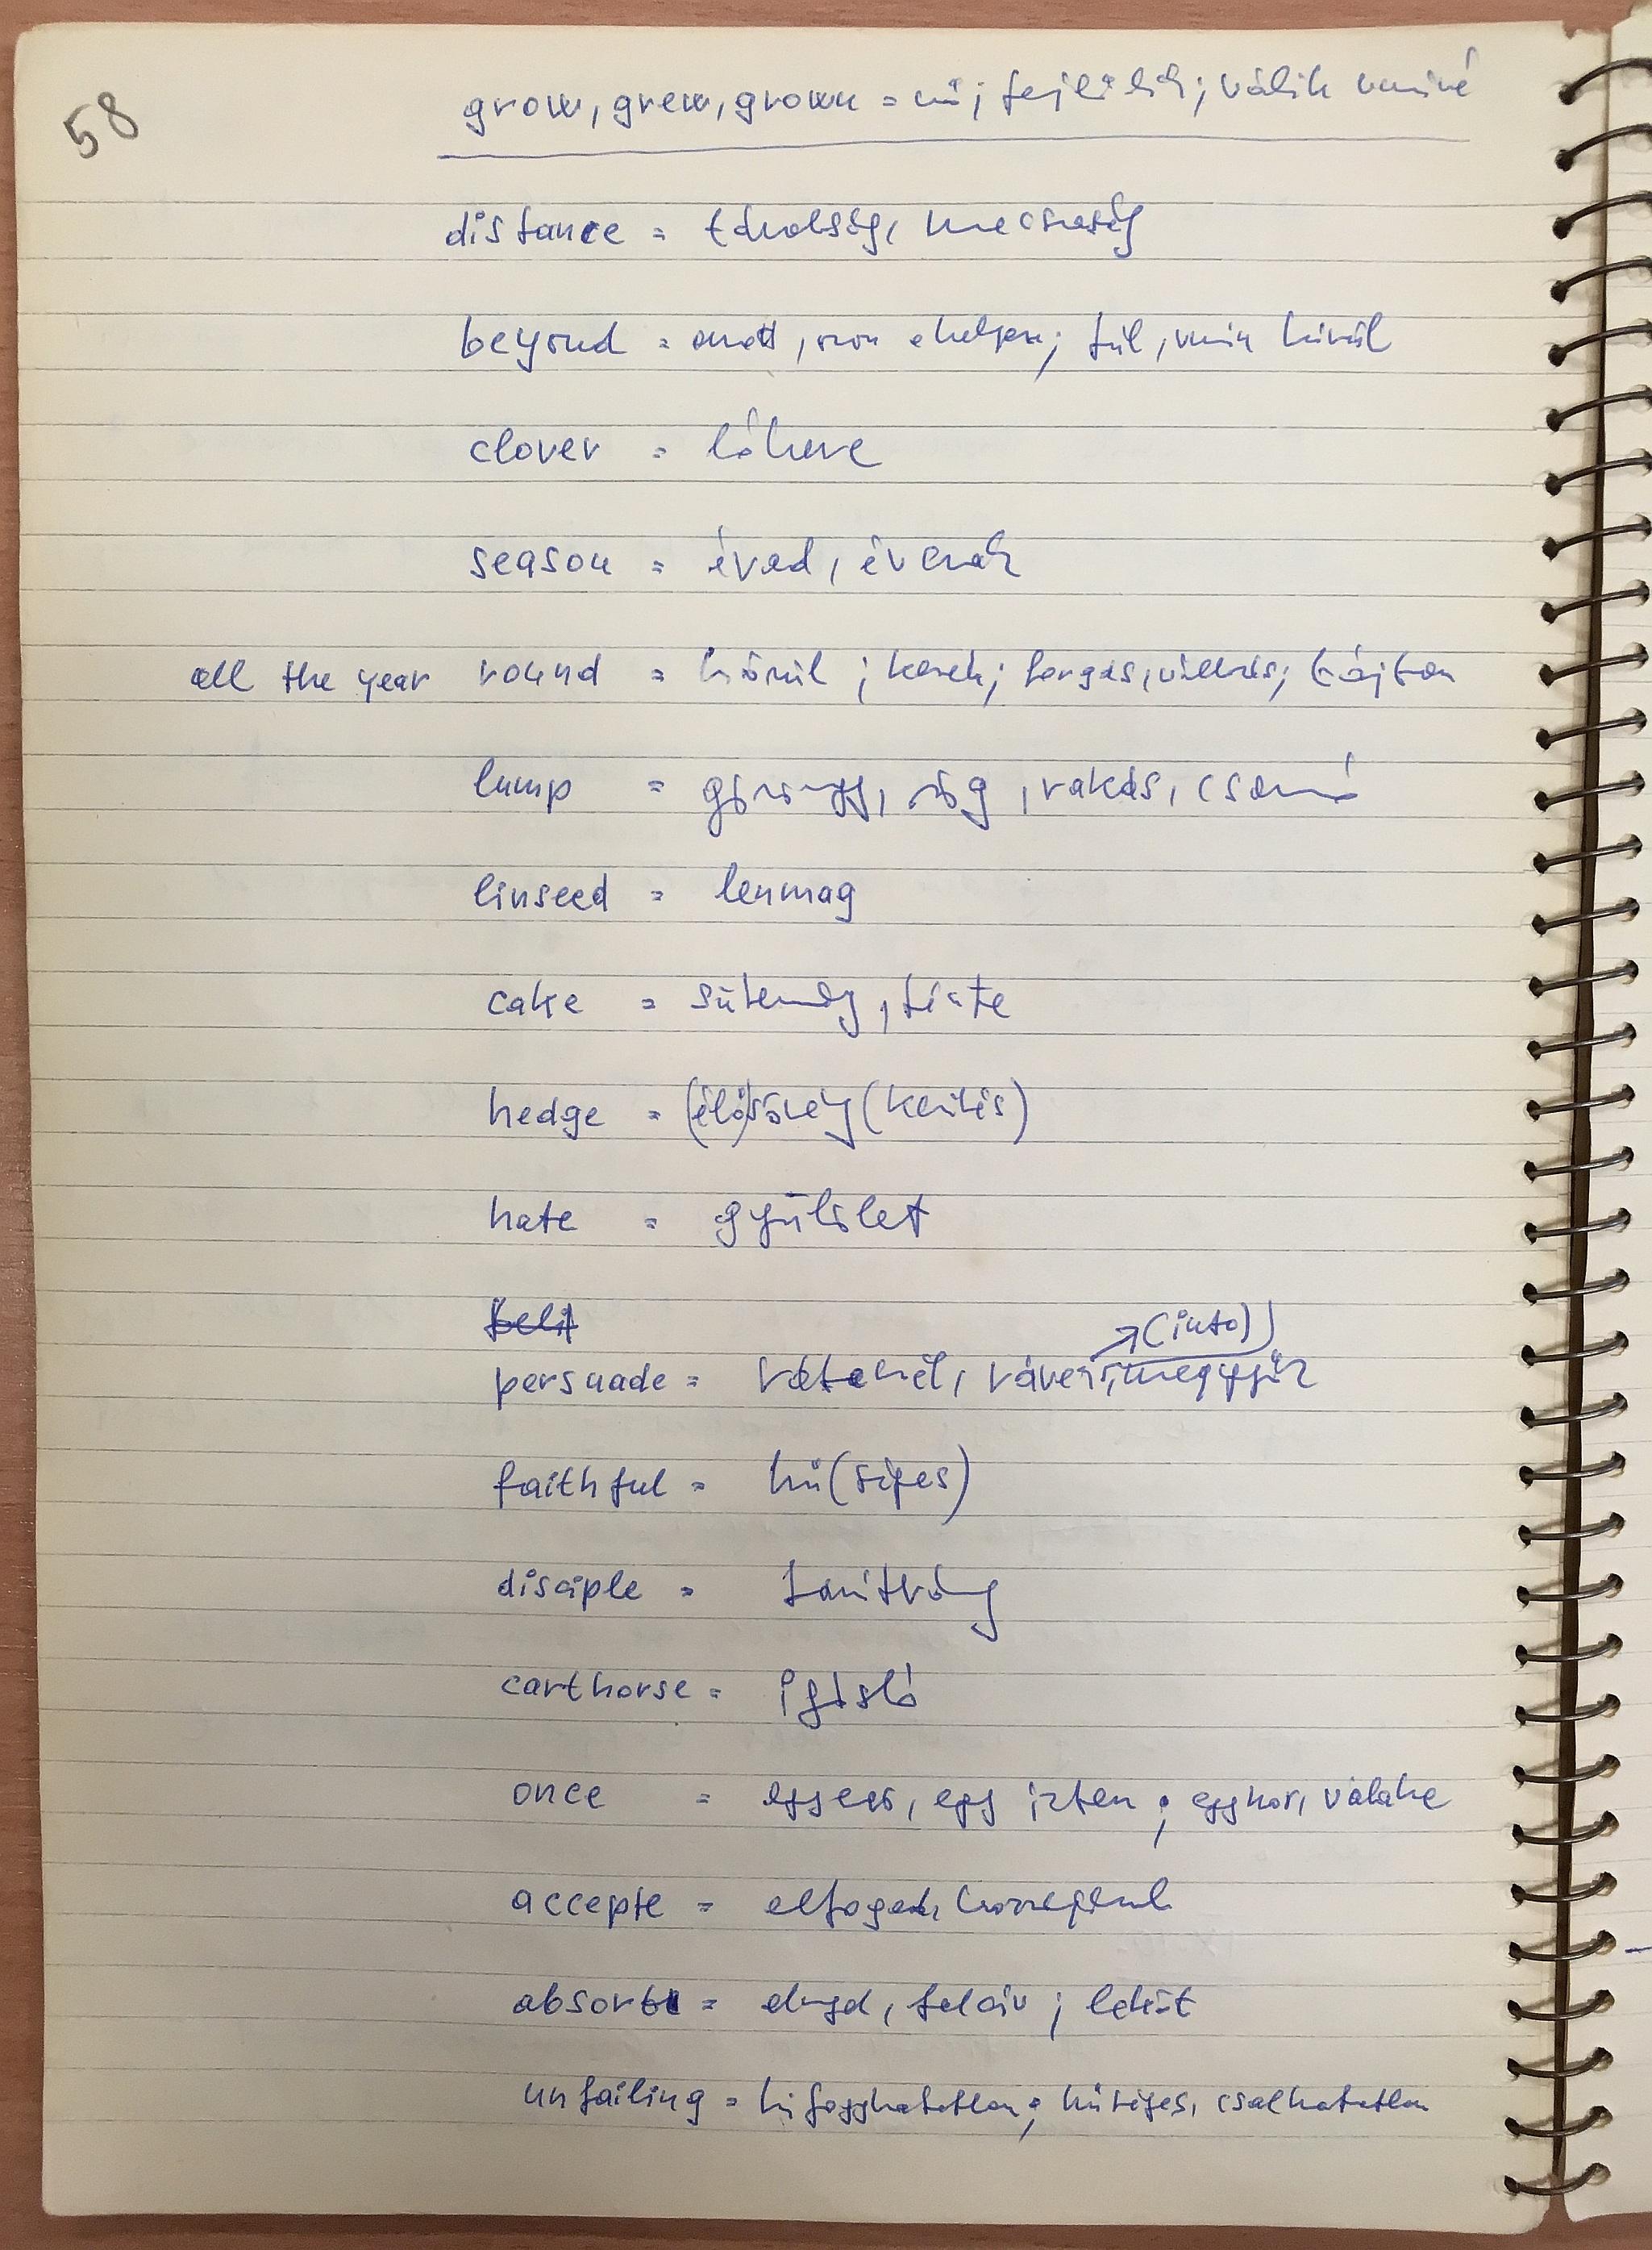 58
grow, grew, grown = nő; fejlődik; válik vmivé
distance = távolság, messzeség
beyond = amott, azon a helyen; túl, vmin kívül
clover = lóhere
season = évad, évszak
all the year round = körül; kerek; forgás, váltás; tájban
lump = göröngy, rög, rakás, csomó
linseed = lenmag
cake = sütemény, tészta
hedge = (élő)sövény (kerítés)
hate = gyűlölet
(into)
persuade = rábeszél, ráveszi, meggyőz
faithful = hű(séges)
disciple = tanítvány
carthorse = igásló
once = egyszer, egy ízben; egykor, valaha
accepte = elfogad,
absorb = elnyel, felszív; leköt
unfailing = kifogyhatatlan; hűséges, csalhatatlan